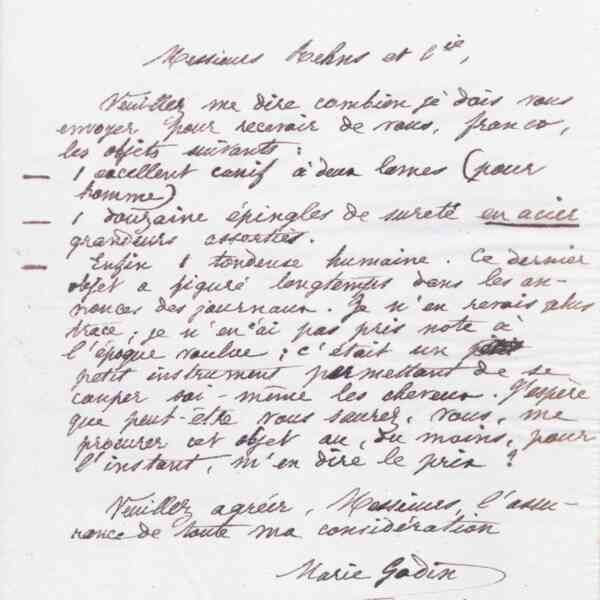 Messieurs Rehns et Cie,
Veuillez me dire combien je dois vous
envoyer pour recevoir de vous, franco,
les objets suivants :
— 1 excellent canif à deux lames (pour
homme)
— 1 douzaine épingles de sureté en acier
grandeurs assorties.
— Enfin 1 tondeuse humaine. Ce dernier
objet a figuré longtemps dans les an-
nonces des journaux. Je n'en revois plus
trace ; je n'en ai pas pris note à
l'époque voulue ; c'était un
petit instrument permettant de se
couper soi-même les cheveux. J'espère
que peut-être vous saurez, vous, me
procurer cet objet ou, du moins, pour
l'instant, m'en dire le prix ?
Veuillez agréer, Messieurs, l'assu-
rance de toute ma considération
Marie Godin